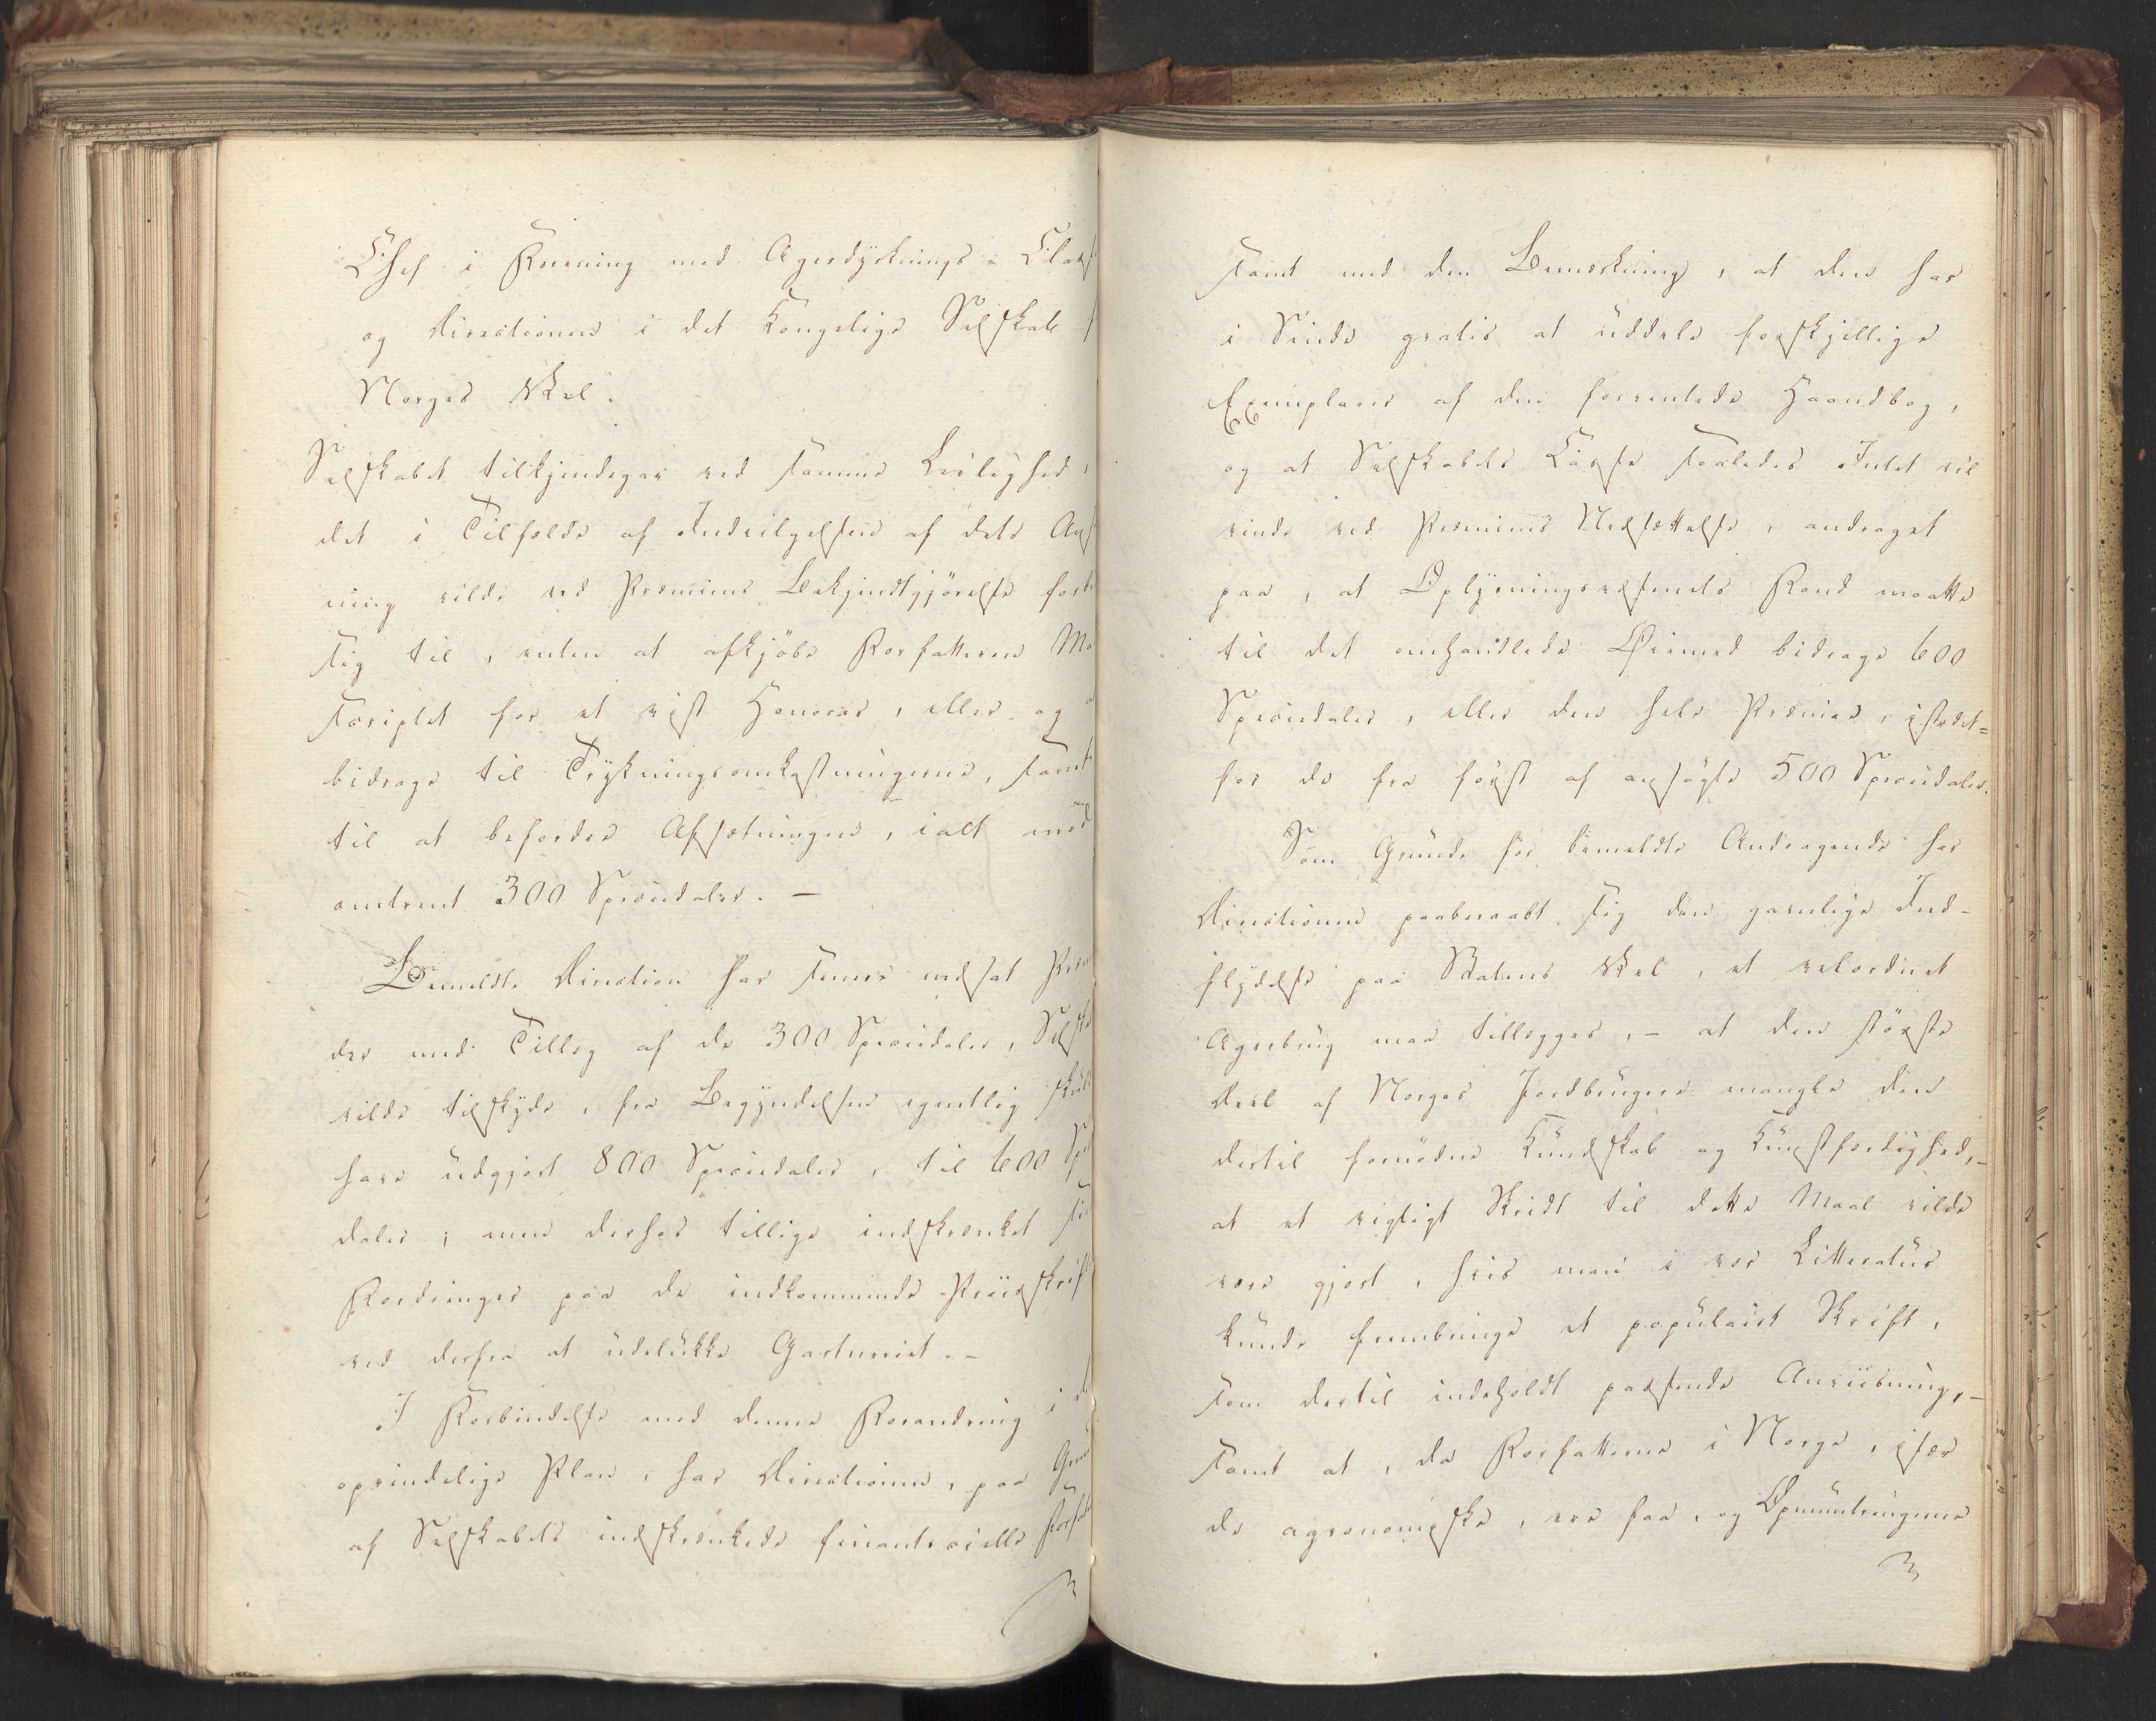 Chef i Forening med Agerdyrknings-Class
og Directionen i det Kongelige Selskab f
Norges Vel.
Selskabet tilkjendegav ved samme Leilighed,
det i Tilfælde af Indvilgelsen af dets Ans
ning vilde ved Præmiens Bekjendtgjörelse forbe
sig til, enten at afkjöbe Forfatteren Ma
scriptet for et vist Honorar, eller og
bidrage til Trykningsomkostningerne, samt
til at befordre Afsætningen, ialt med
omtrent 300 Speciedaler. —
Bemeldte Direction har senere nedsat Præm
der med Tillæg af de 300 Speciedaler, Selska
vilde tilskyde, fra Begyndelsen egentlig skul
have udgjort 800 Speciedaler, til 600 Spe
daler; men derhos tillige indskrænket si
Fordringer paa de indkommende Priisskrift
ved derfra at udelukke Gartneriet. —
I Forbindelse med denne Forandring i d
oprindelige Plan, har Directionen, paa Gru
af Selskabets indskrænkede finantsielle Forfat
samt med den Bemærkning, at den har
i Sinde gratis at uddele forskjellige
Exemplarer af den forventede Haandbog,
og at Selskabets Casse saaledes Intet vil
vinde ved Præmiens Nedsættelse, andraget
paa, at Oplysningsvæsenets Fond maatte
til det omhandlede Öiemed bidrage 600
Speciedaler, eller den hele Præmie, istedet-
for de fra först af ansögte 500 Speciedaler.
Som Grunde for bemeldte Andragende har
Directionen paaberaabt sig den gavnlige Ind-
flydelse paa Statens Vel, et velordnet
Agerbrug maa tillægges, — at den störste
Deel af Norges Jordbrugere mangle den
dertil fornödne Kundskab og Kunstfærdighed, —
at et vigtigt Skridt til dette Maal vilde
være gjort, hvis man i vor Litteratur
kunde frembringe et populairt Skrift,
som dertil indeholdt passende Anviisning, —
samt at, da Forfatterne i Norge, især
de agronomiske, ere faa, og Opmuntringerne